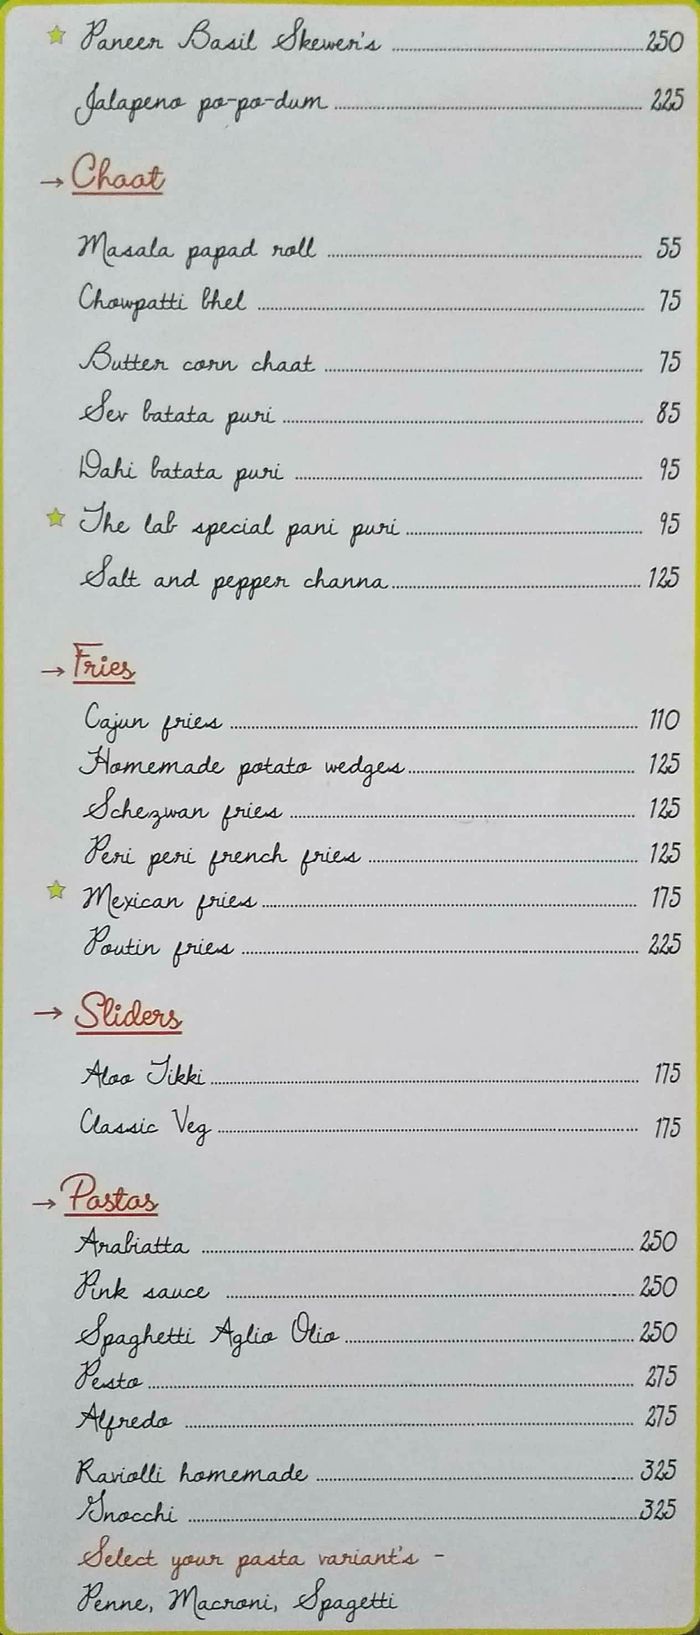 Paneer Basil Skewer's 250
Jalapeno po-po-dum 225
Chaat
Masala papad roll 55
Chowpatti bhel 75
Butter corn chaat 75
Sev batata puri 85
Dahi batata puri 95
The lab special pani puri 95
Salt and pepper channa 125
Fries
Cajun fries 110
Homemade potato wedges 125
Schezwan fries 125
Peri peri french fries 125
Mexican fries 175
Poutin fries 225
Sliders
Aloo Tikki 175
Classic Veg 175
Pastas
Arabiatta 250
Pink sauce 250
Spaghetti Aglio Olio 250
Pesto 275
Alfredo 275
Raviolli homemade 325
Gnocchi 325
Select your pasta variant's -
Penne, Macroni, Spagetti